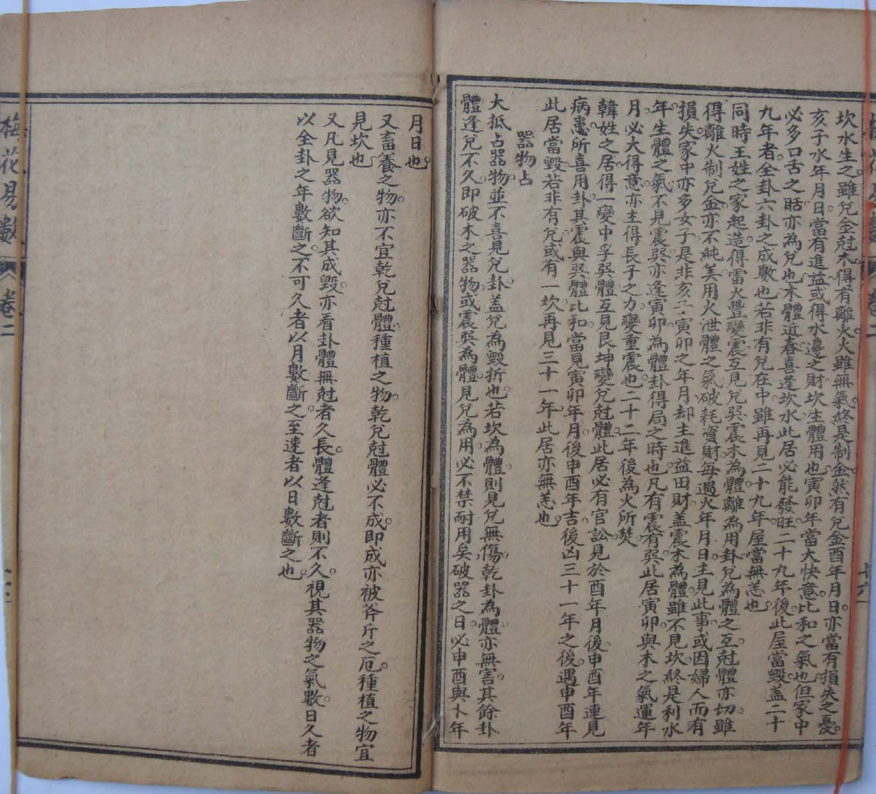 坎水生之雖兌金尅木得有離火火雖無氣終是制金然有兌金酉年月日亦當有損失之憂
亥子水年月日當有進益或得水邊之財坎生體用也寅卯年當大快意比和之氣也但家中
必多口舌之聒亦為兌也木體近春喜逢坎水此居必能發旺二十九年後此屋當毀蓋二十
九年者全卦六卦之成數也若非有兌在中雖再見二十九年屋當無恙也
同時王姓之家起造得雷火豐變震互見兌巽震木為體離為用卦兌為體之互尅體亦切雖
得離火制兌金亦不純美用火泄體之氣破耗資財每遇火年月日主見此事或因婦人而有
損失家中亦多女子是非亥子寅卯之年月却主進益田財蓋震木為體雖不見坎終是利水
年生體之氣不見震巽亦逢寅卯為體卦得局之時也凡有震有巽此居寅卯與木之氣運年
月必大得意亦主得長子之力變重震也二十二年後為火所焚
韓姓之居得一變中孚巽體互見艮坤變兌尅體此居必有官訟見於酉年月後申酉年連見
病患所喜用卦其震與巽體比和當見寅卯年月後申酉年吉後凶三十一年之後遇申酉年
此居當毀若非有兌或有一坎再見三十一年此居亦無恙也
器物占
大抵占器物並不喜見兌卦蓋兌為毀折也若坎為體則見兌無傷乾卦為體亦無害其餘卦
體逢兌不久即破木之器物或震巽為體見兌為用必不禁耐用矣破器之日必申酉與卜年
月日也
又畜養之物亦不宜乾兌尅體種植之物乾兌尅體必不成即成亦被斧斤之厄種植之物宜
見坎也
又凡見器物欲知其成毀亦看卦體無尅者久長體逢尅者則不久視其器物之氣數日久者
以全卦之年數斷之不可久者以月數斷之至速者以日數斷之也
梅花易數
卷二